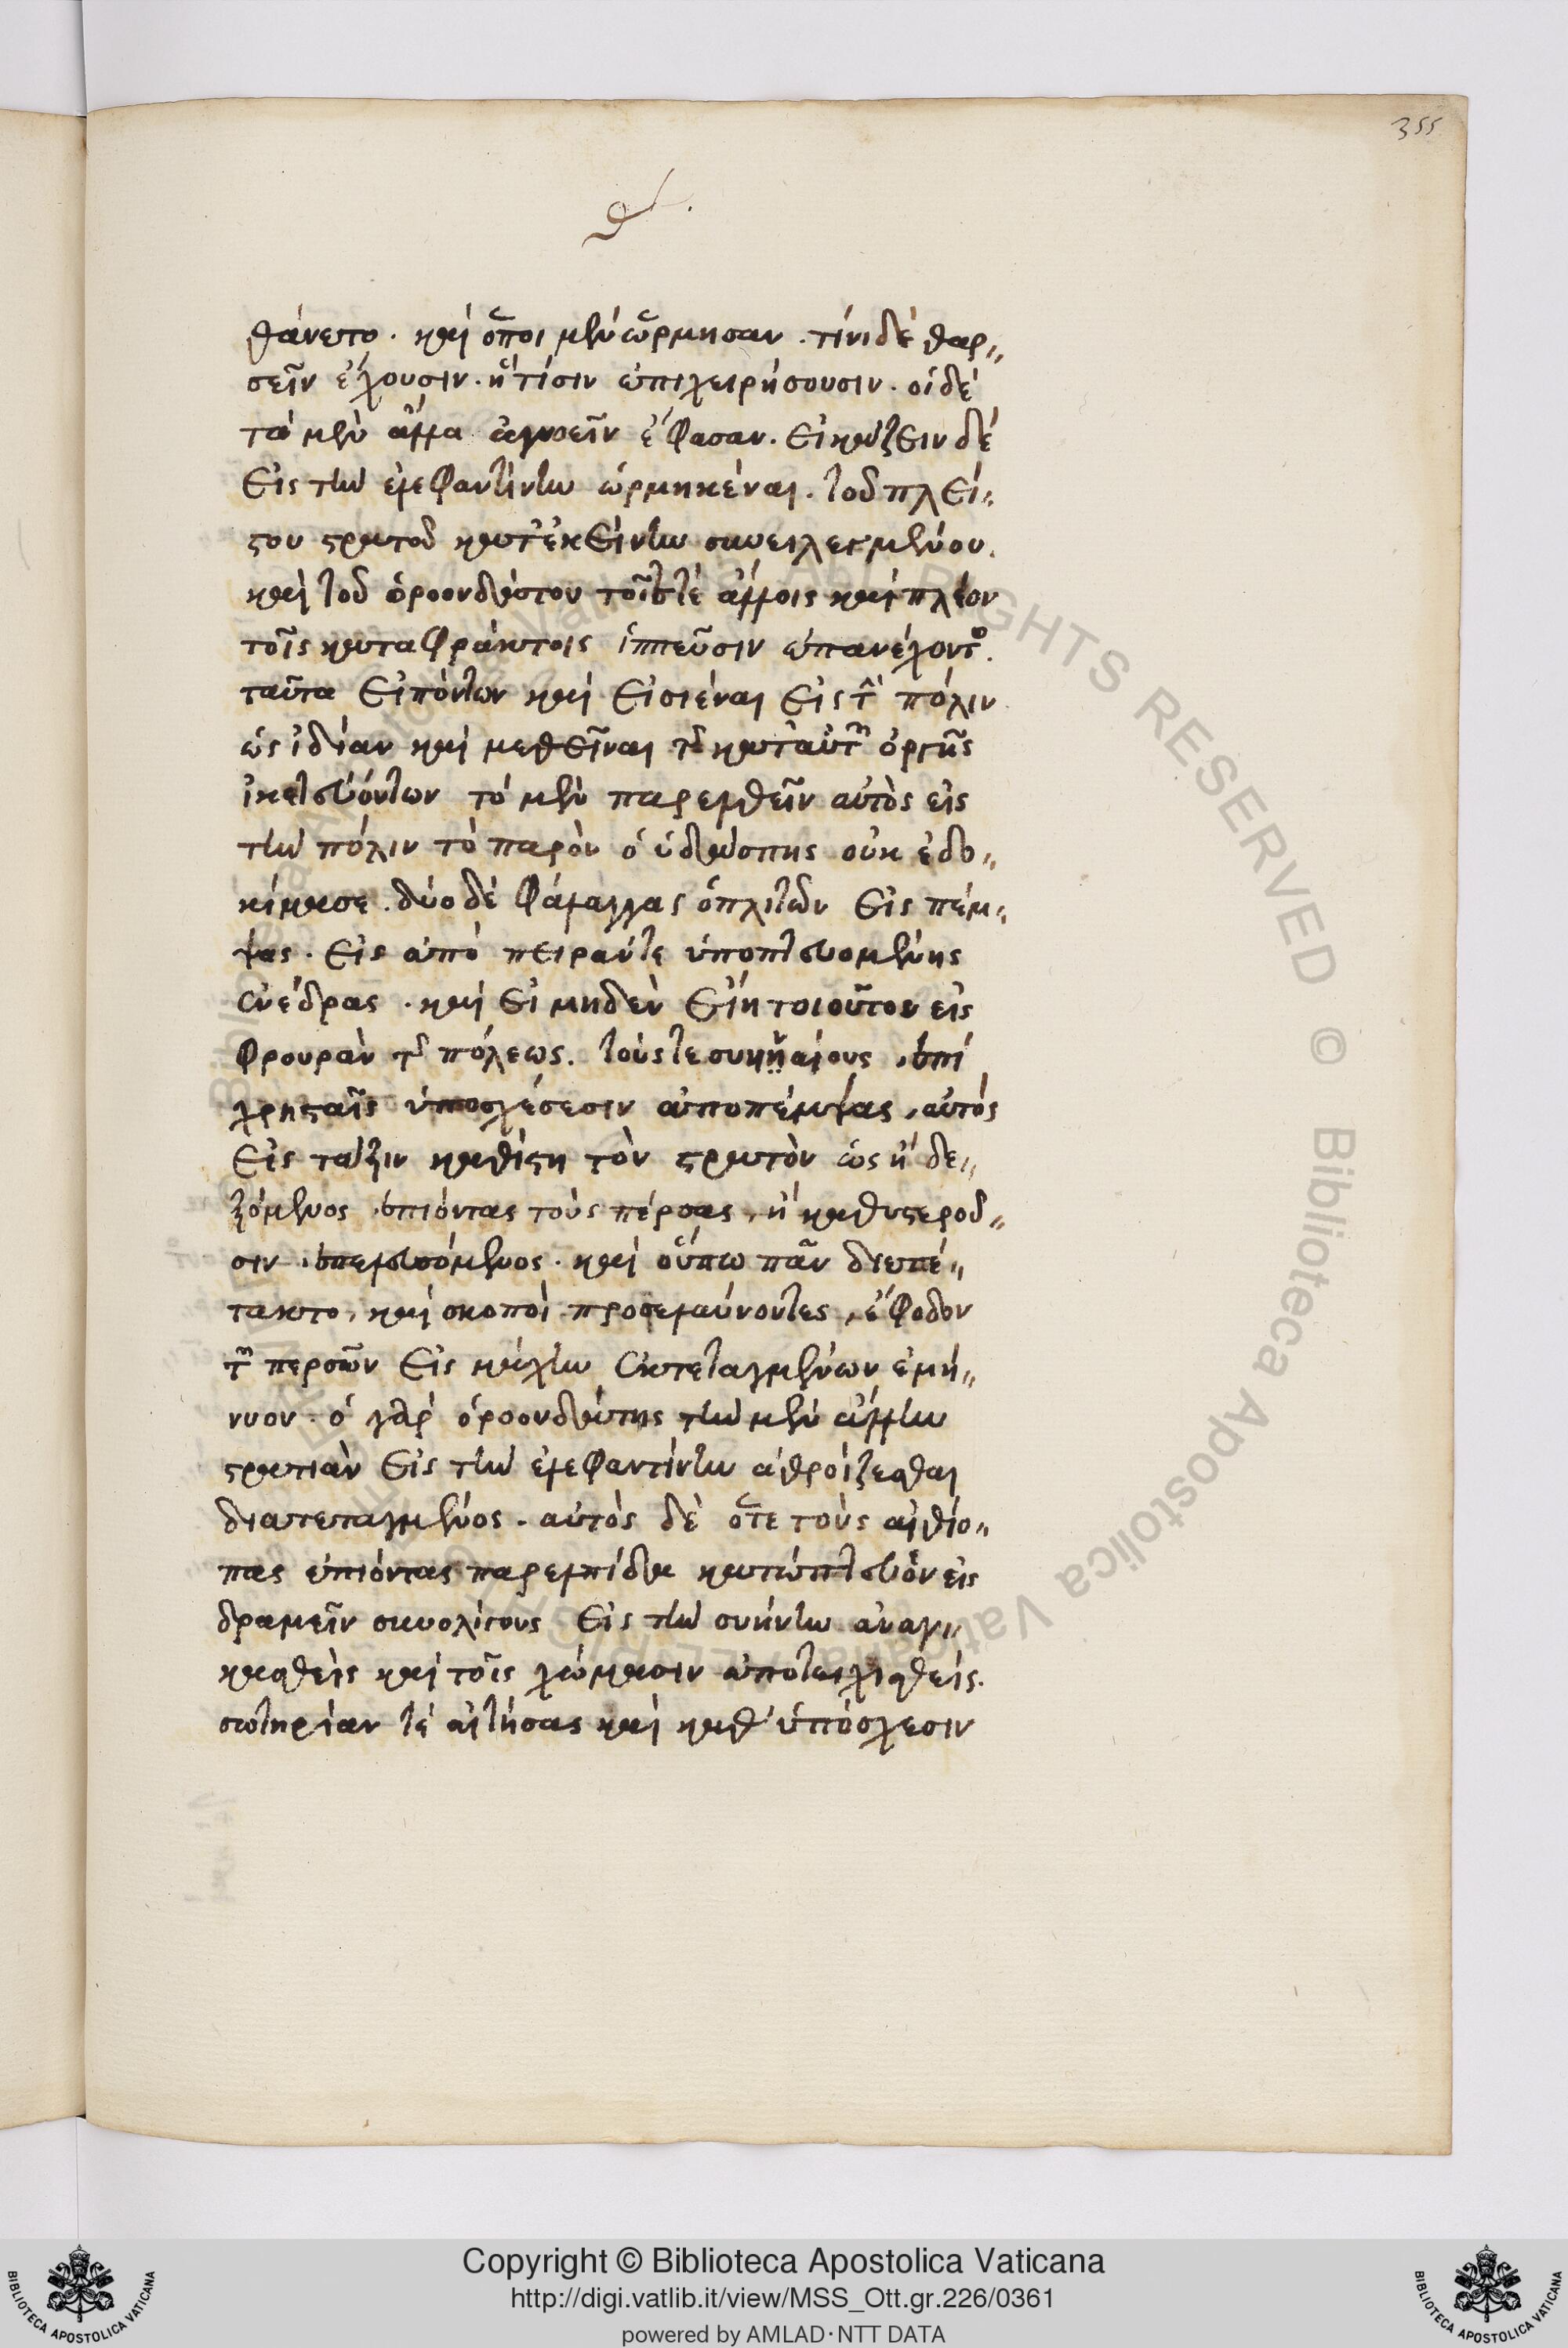 355
θ΄.
θάνετο. καὶ ὅποι μὲν ὥρμησαν. τίνι δὲ θαρ„
σεῖν ἔχουσιν. ἢ τίσιν ἐπιχειρήσουσιν. οἱ δὲ
τὰ μὲν ἄλλα ἀγνοεῖν ἔφασαν. εἰκάζειν δὲ
εἰς τὴν ἐλεφαντίνην ὡρμηκέναι. τοῦ πλεί„
στου στρατοῦ κατ' ἐκείνην συνειλεγμένου.
καὶ τοῦ ὀροονδάτου τοῖς τὲ ἄλλοις καὶ πλέον
τοῖς καταφράκτοις ἱππεῦσιν ἐπανέχοντος.
ταῦτα εἰπόντων καὶ εἰσιέναι εἰς τὴν πόλιν
ὡς ἰδίαν καὶ μεθεῖναι τῆς κατ' αὐτῶν ὀργῆς
ἱκετευόντων τὸ μὲν παρελθεῖν αὐτὸς εἰς
τὴν πόλιν τὸ παρὸν ὁ ὑδάσπης οὐκ ἐδο„
κίμασε. δύο δὲ φάλαγγας ὁπλιτῶν εἰς πέμ„
ψας. εἰς ἀπόπειράν τε ὑποπτευομένης
ἐνέδρας. καὶ εἰ μηδὲν εἴη τοιοῦτον εἰς
φρουρὰν τῆς πόλεως. τούς τε συηναίους, ἐπὶ
χρησταῖς ὑποσχέσεσιν ἀποπέμψας, αὐτὸς
εἰς τάξιν καθίστη τὸν στρατὸν ὡς ἢ δε„
ξόμενος ἐπιόντας τοὺς πέρσας, ἢ καθυστεροῦ„
σιν ἐπελευσόμενος. καὶ οὔπω πᾶν διετέ„
τακτο, καὶ σκοποὶ προσελαύνοντες, ἔφοδον
τῶν περσῶν εἰς μάχην ἐκτεταγμένων ἐμή„
νυον. ὁ γὰρ ὀροονδάτης τὴν μὲν ἄλλην
στρατιὰν εἰς τὴν ἐλεφαντίνην ἀθροίζεσθαι
διατεταγμένος. αὐτὸς δὲ ὅτε τοὺς αἰθίο„
πας ἐπιόντας παρελπίδα κατώπτευον εἰς
δραμεῖν σὺν ὀλίγοις εἰς τὴν συήνην ἀναγ„
κασθεὶς καὶ τοῖς χώμασιν ἀποτειχισθείς.
σωτηρίαν τὲ αἰτήσας καὶ καθ' ὑπόσχεσιν
Copyright © Biblioteca Apostolica Vaticana
http://digi.vatlib.it/view/MSS_Ott.gr.226/0361
powered by AMLAD·NTT DATA